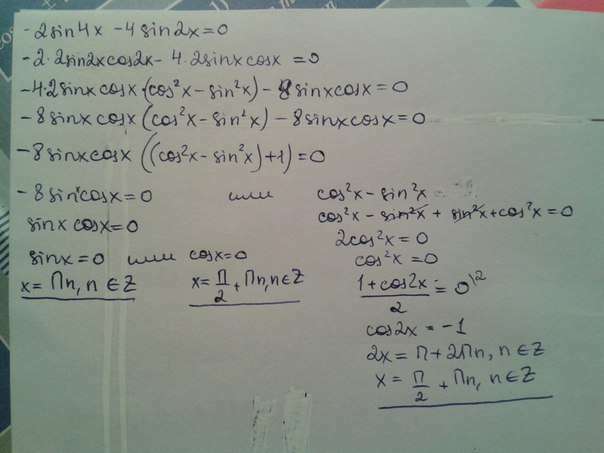 -2sin4x -4sin2x=0
-2·2sin2xcos2x- 4·2sinxcosx =0
-4·2sinxcosx·(cos²x-sin²x)-8sinxcosx=0
-8sinxcosx(cos²x-sin²x)-8sinxcosx=0
-8sinxcosx((cos²x-sin²x)+1)=0
-8sinxcosx=0 или cos²x-sin²x=
sinx cosx=0 cos²x-sin²x+sin²x+cos²x=0
2cos²x=0
sinx=0 или cosx=0 cos²x=0
x=Πn, n∈Z x=Π/2+Πn, n∈Z (1+cos2x)/2=0 |·2
cos2x=-1
2x=Π+2Πn, n∈Z
x=Π/2+Πn, n∈Z